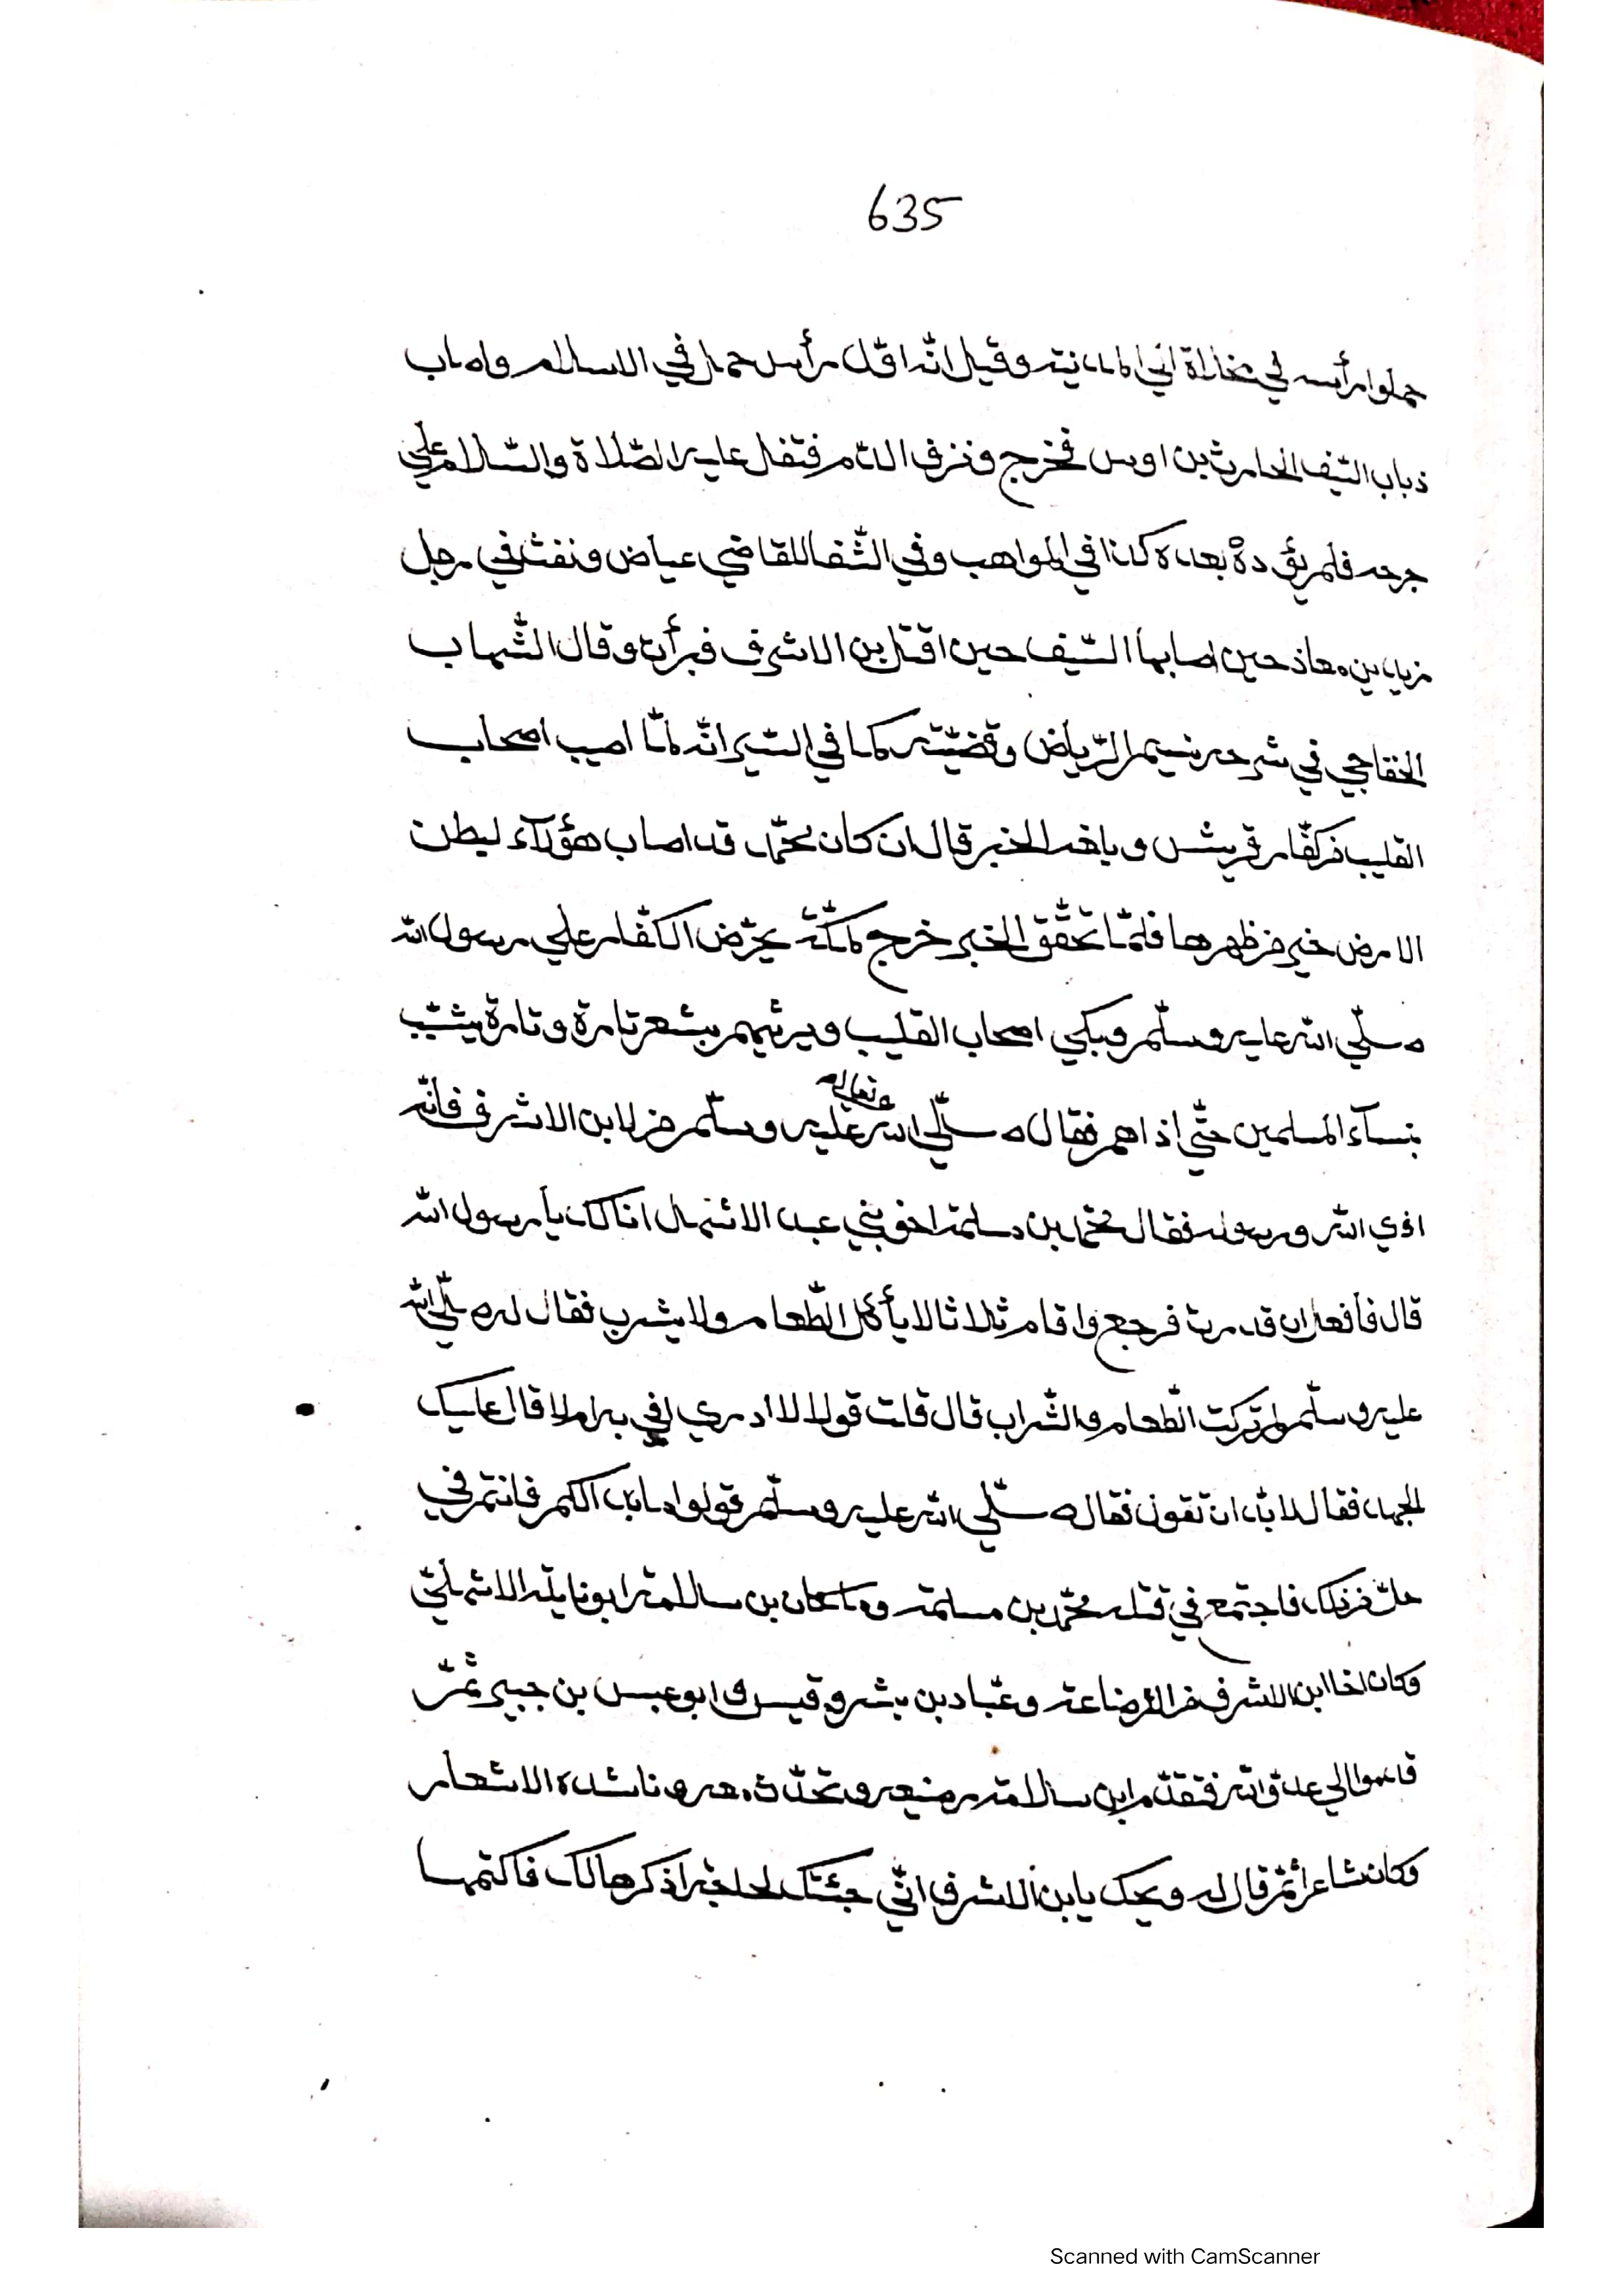 635
حملوا رأسه في مخلاة الي المدينة وقيل انّه اوّل رأس حمل في الاسلام واصاب
ذباب السّيف الحارث بن اوس فخرج ونزف الدّم فتفل عليه الصّلاة والسّلام علي
جرحه فلم يؤذه بعده كذا في المواهب وفي الشّفا للقاضي عياض ونفث في رجل
زيد بن معاذ حين اصابها السّيف حين اقتل بن الاشرف فبرأت وقال الشّهاب
الخفاجي في شرحه نسيم الرّياض وقضيّته كما في السّير انّه لمّا اصيب اصحاب
القليب من كفّار قريش وبلغه الخبر قال ان كان محمّد قد اصاب هؤلآء لبطن
الارض خير من ظهرها فلمّا تحقّق الخبر خرج لمكّة يحرّض الكفّار علي رسول الله
صلّي الله عليه وسلّم ويبكي اصحاب القليب ويرثيهم بشعر تارة وتارة يشبّب
بنسآء المسلمين حتّي اذاهم فقال صلّي الله تعالي عليه وسلّم من لابن الاشرف فانّه
اذي الله ورسوله فقال محمّد بن مسلمة اخو بني عبد الاشهل انا لك يا رسول الله
قال فأفعل ان قدرت فرجع واقام ثلاثا لا يأكل الطّعام ولا يشرب فقال له صلّي الله
عليه وسلّم لم تركت الطّعام والشّراب قال قلت قولا لا ادري افي به ام لا قال عليك
الجهد فقال لا بدّ ان نقول فقال صلّي الله عليه وسلّم قولوا ما بدا لكم فانتم في
حلّ من ذلك فاجتمع في قتله محمّد بن مسلمة وملكان بن سلامة ابو نايلة الاشهليّ
وكان اخا ابن الاشرف من الرّضاعة وعبّاد بن بشر وقيس وابو عبس بن جبير ثمّ
قدموا الي عدوّ الله فتقدّم ابن سلامة رضيعه وتحدّث معه وناشده الاشعار
وكان شاعرا ثمّ قال له ويحك يا بن الاشرف انّي جئتك لحاجة اذكرها لك فاكتمها
Scanned with CamScanner